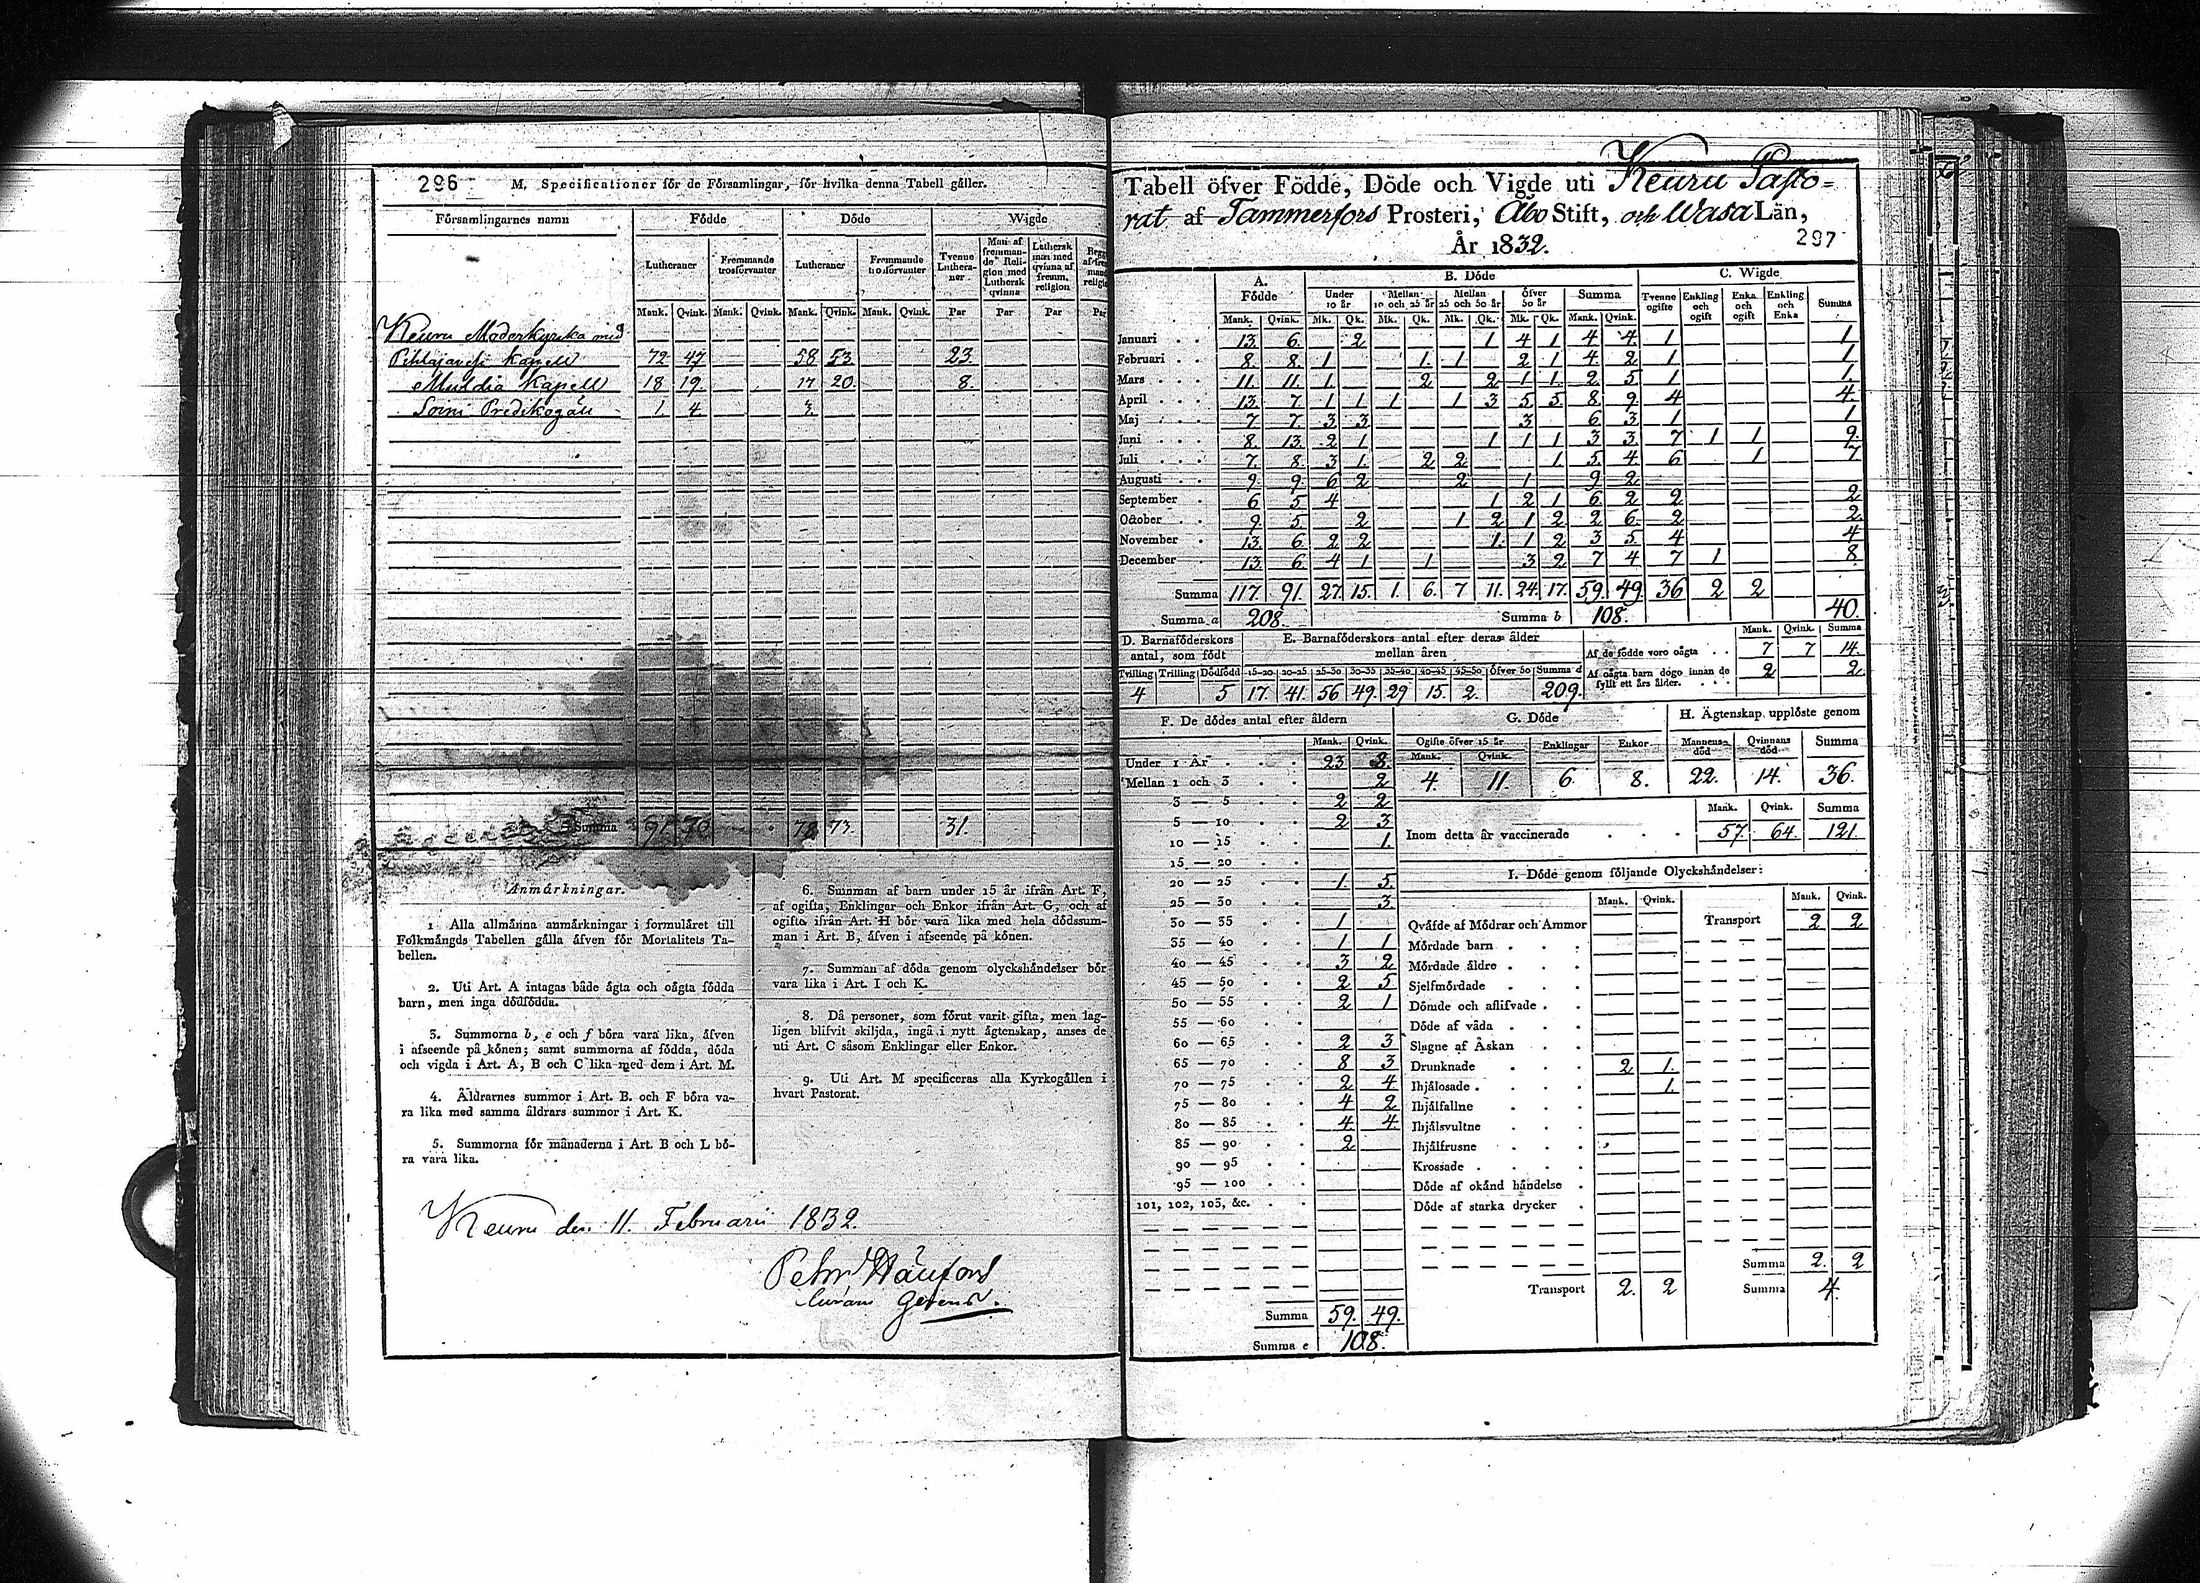 296 M. Specificationer för de Församlingar, för hvilka denna Tabell gäller.
Församlingarnes namn Födde Döde Wigde
Lutheraner Fremmande trosförvanter Lutheraner Fremmande trosförvanter Tvenne Lutheraner Man af fremmande Religion med Luthersk qvinna Luthersk man med qvinna af fremm. religion
Mank. Qvink. Mank. Qvink. Mank. Qvink. Mank. Qvink. Par Par Par
Keuru Moderkyrka med
Pihlajavesi Kapell 72 47 58 53 23
Multia Kapell 18 19. 17 20. 8.
Soini Predikogäll 1. 4 3.
Summa 91 70 78 73. 31.
Anmärkningar.
1 Alla allmänna anmärkningar i formuläret till
Folkmängds Tabellen gälla äfven för Mortalitets Ta-
bellen.
2. Uti Art. A intagas både ägta och oägta födda
barn, men inga dödfödda.
3. Summorna b, e och f böra vara lika, äfven
i afseende på könen; samt summorna af födda, döda
och vigda i Art. A, B och C lika med dem i Art. M.
4. Åldrarnes summor i Art. B. och F böra va-
ra lika med samma åldrars summor i Art. K.
5. Summorna för månaderna i Art. B och L bö-
ra vara lika.
6. Summan af barn under 15 år ifrån Art. F,
af ogifta, Enklingar och Enkor ifrån Art. G, och af
ogifta ifrån Art. H bör vara lika med hela dödssum-
man i Art. B, äfven i afseende på könen.
7. Summan af döda genom olyckshändelser bör
vara lika i Art. I och K.
8. Då personer, som förut varit gifta, men lag-
ligen blifvit skiljda, ingå i nytt ägtenskap, anses de
uti Art. C såsom Enklingar eller Enkor.
9. Uti Art. M specificeras alla Kyrkogällen i
hvart Pastorat.
Keuru den 11. Februarii 1832.
Tabell öfver Födde, Döde och Vigde uti Keuru Pasto=
rat af Tammerfors Prosteri, Åbo Stift, och Wasa Län,
År 1832. 297
A. Födde B. Döde C. Wigde
Under 10 år Mellan 10 och 25 år Mellan 25 och 50 år Öfver 50 år Summa Tvenne ogifte Enkling och ogift Enka och ogift Enkling och Enka Summa
Mank. Qvink. Mk. Qk. Mk. Qk. Mk. Qk. Mk. Qk. Mank. Qvink.
Januari 13. 6. 2 1 4 1 4 4 1 1
Februari 8. 8. 1 1. 1 2 1 4 2 1 1
Mars 11. 11. 1 2 2 1 1. 2 5 1 1.
April 13. 7 1 1 1 1 3 5 5 8. 9 4 4
Maj 7 7. 3 3 3 6 3 1 1
Juni 8. 13. 2 1 1 1 1 3 3 7 1 1 9.
Juli 7. 8. 3 1. 2 2 1. 5 4 6 1 7
Augusti 9. 9. 6 2 2 1 9 2
September 6 5 4 1 2 1 6 2 2 2
October 9. 5 2 1 2 1 2 2 6. 2 2
November 13. 6 2 2 1. 1 2 3 5 4 4
December 13. 6. 4 1 1 3 2 7 4 7 1 8.
Summa 117. 91. 27. 15. 1. 6. 7 11. 24. 17. 59. 49. 36 2 2
Summa a 208. Summa b 108. 40.
D. Barnaföderskors antal, som födt E. Barnaföderskors antal efter deras ålder mellan åren Mank. Qvink. Summa
Af de födde voro oägta 7 7 14.
Tvilling Trilling Dödfödd 15-20 20-25 25-30 30-35 35-40 40-45 45-50 Öfver 50 Summa d
4 5 17. 41. 56 49. 29 15. 2. 209.
Af oägta barn dogo innan de fyllt ett års ålder. 2 2
F. De dödes antal efter åldern
Mank. Qvink.
Under 1 År 23 8.
Mellan 1 och 3 2
3 — 5 2 2
5 — 10 2 3
10 — 15 1.
15 — 20
20 — 25 1. 5.
25 — 30 3
30 — 35 1
35 — 40 1 1
40 — 45 3 2
45 — 50 2 5
50 — 55 2 1
55 — 60
60 — 65 2 3
65 — 70 8 3
70 — 75 2 4
75 — 80 4 2
80 — 85 4 4
85 — 90 2
90 — 95
95 — 100
101, 102, 103, &c.
Summa 59. 49.
Summa e 108.
G. Döde H. Ägtenskap upplöste genom
Ogifte öfver 15 år Enklingar Enkor Mannens död Qvinnans död Summa
Mank. Qvink.
4. 11. 6. 8. 22. 14. 36.
Mank. Qvink. Summa
Inom detta år vaccinerade 57. 64. 121
I. Döde genom följande Olyckshändelser:
Mank. Qvink. Mank. Qvink.
Qväfde af Mödrar och Ammor Transport 2 2
Mördade barn
Mördade äldre
Sjelfmördade
Dömde och aflifvade
Döde af våda
Slagne af Åskan
Drunknade 2 1.
Ihjälosade 1.
Ihjälfallne
Ihjälsvultne
Ihjälfrusne
Krossade
Döde af okänd händelse
Döde af starka drycker
Summa 2. 2
Transport 2. 2 Summa 4.